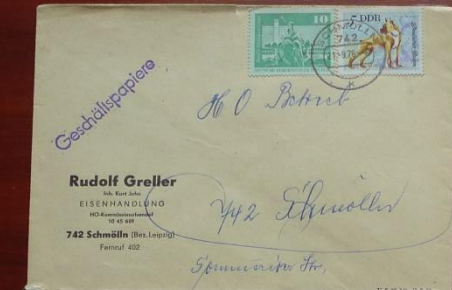 10
5 DDR
SCHMÖLLN
742
Geschäftspapiere
H O Betrieb
Rudolf Greller
Inh. Kurt John
EISENHANDLUNG
HO-Kommissionshandel
10 45 681
742 Schmölln (Bez. Leipzig)
Fernruf 402
742 Schmölln
Sommeritzer Str.